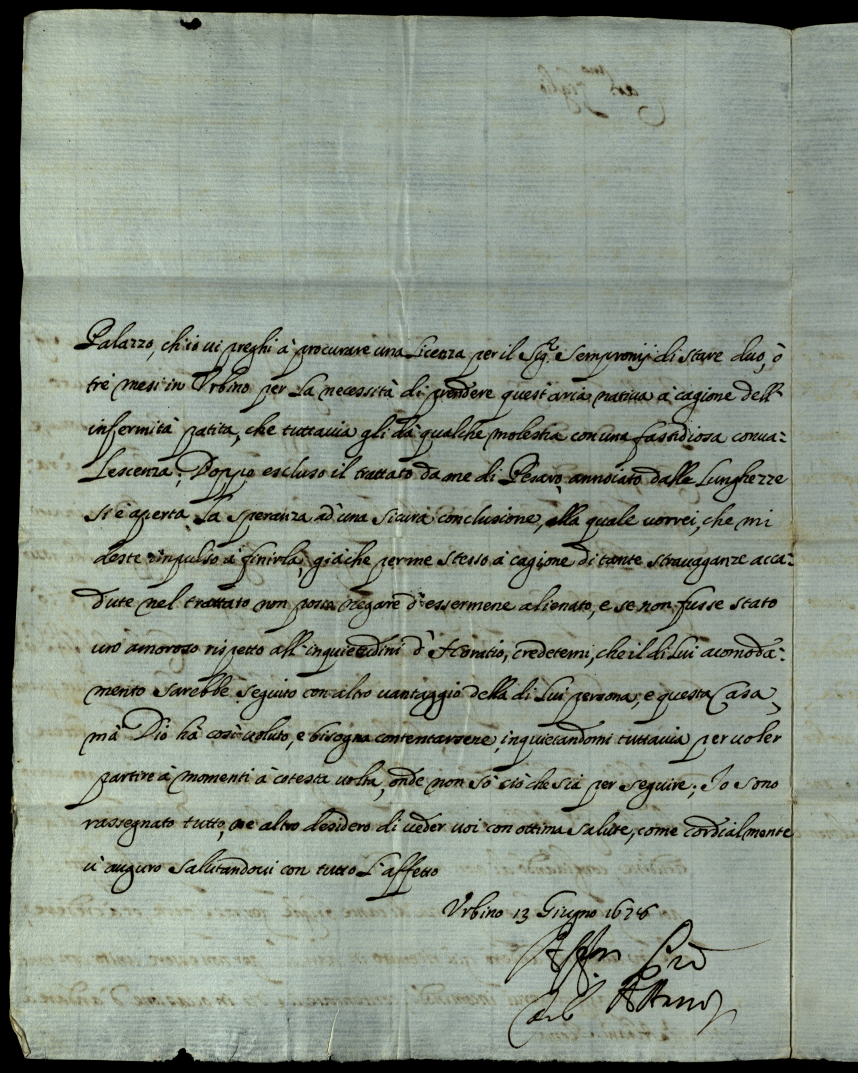 Palazzo, ch'io vi preghi à procurare una Licenza per il Sig.r Sempronij di stare duo, ò
trè mesi in Urbino per la necessità di prendere quest'aria nativa à cagione dell'
infermità patita, che tuttavia gli dà qualche molestia con una fastidiosa conva-
lescenza; Doppo escluso il trattato da me di Pesaro, annoiato dalle lunghezze
si è aperta la speranza ad una sicura conclusione, alla quale vorrei, che mi
deste impulso à finirla, giàche per me stesso à cagione di tante stravaganze acca-
dute nel trattato non posso negare d'essermene alienato, e se non fusse stato
uno amoroso rispetto all'inquietudini d'Horatio, credetemi, che il di lui acomoda-
mento sarebbe seguito con altro vantaggio della di lui persona, e questa Casa,
mà Dio hà così voluto, e bisogna contentarsene, inquietandomi tuttavia per voler
partire à momenti à cotesta volta, onde non sò ciò che sia per seguire; Io sono
rassegnato tutto, ne altro desidero di veder voi con ottima salute, come cordialmente
v'auguro salutandovi con tutto l'affetto
Urbino 13 Giugno 1678
Aff.mo
Carlo Albani
Car.mo figlio